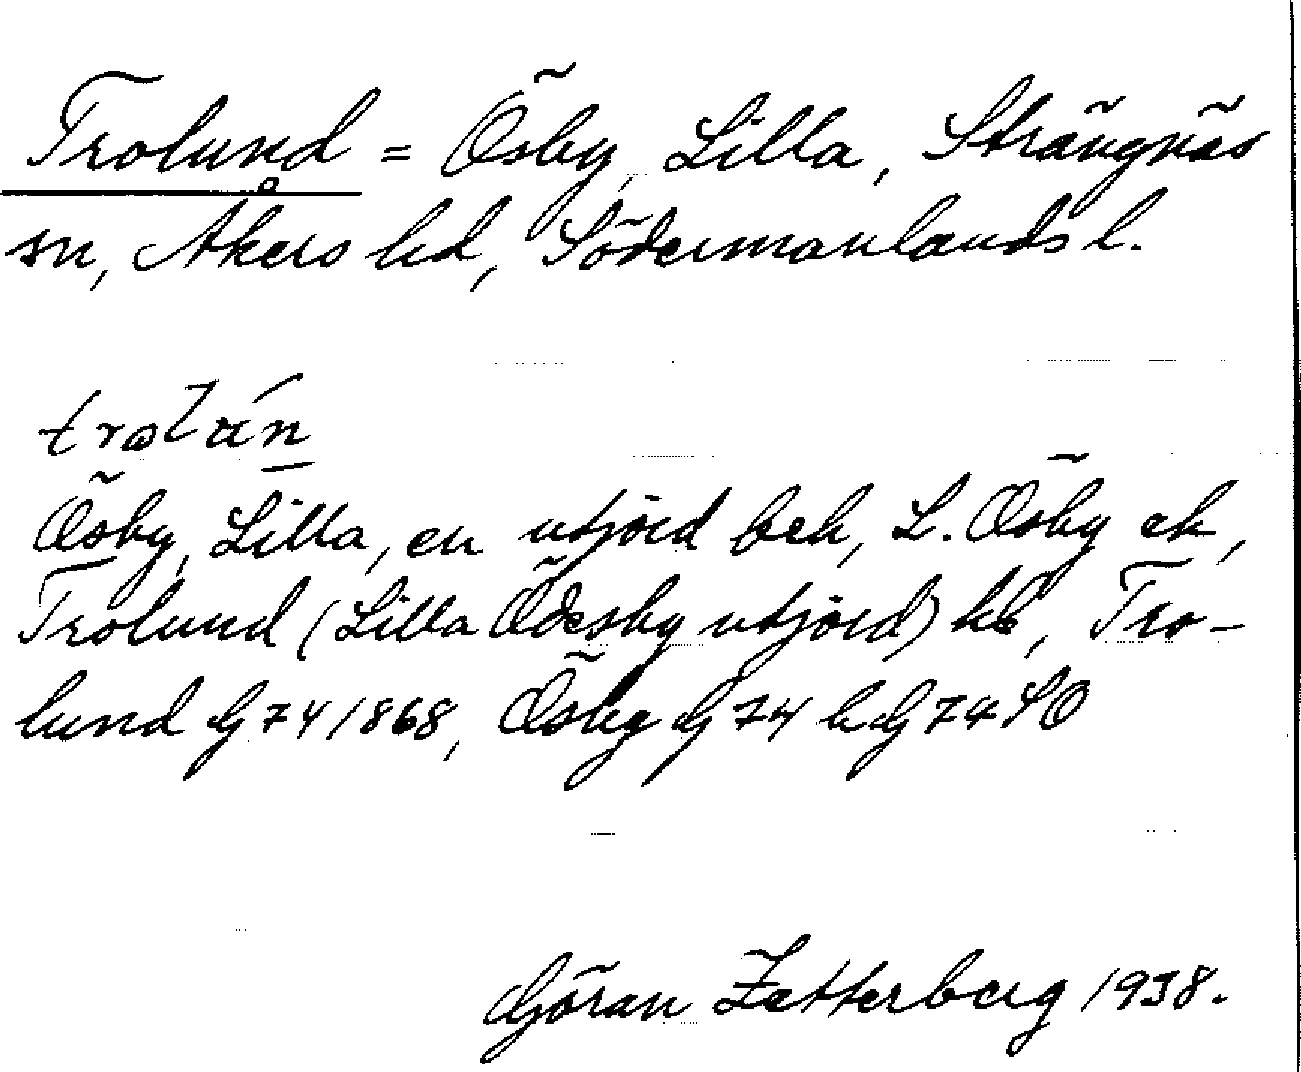 Trolund = Ösby, Lilla, Strängnäs
sn, Åkers hd, Södermanlands l.
Ösby, Lilla, en utjord bek, L. Ösby ek,
Trolund (Lilla Ödesby utjord) hb, Tro-
lund G 74 1868, Ösby G 74 h G 74 SO
Göran Zetterberg 1938.